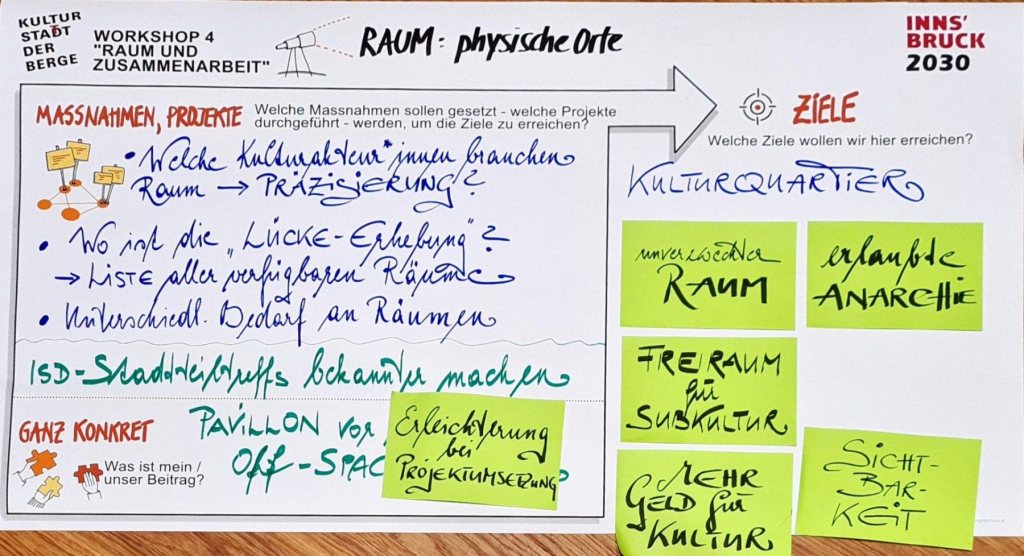 KULTUR
STADT
DER
BERGE
WORKSHOP 4
"RAUM UND
ZUSAMMENARBEIT"
RAUM: physische Orte
INNS'
BRUCK
2030
MASSNAHMEN, PROJEKTE
Welche Massnahmen sollen gesetzt - welche Projekte
durchgeführt - werden, um die Ziele zu erreichen?
• Welche Kulturakteur*innen brauchen
Raum → PRÄZISIERUNG?
• Wo ist die „LÜCKE-Erhebung"?
→ LISTE aller verfügbaren Räume
• Unterschiedl. Bedarf an Räumen
ISD-Stadtteiltreffs bekannter machen
GANZ KONKRET
Was ist mein /
unser Beitrag?
PAVILLON vor
Off-SPAC
Erleichterung
bei
PROJEKTUMSETZUNG
ZIELE
Welche Ziele wollen wir hier erreichen?
KULTURQUARTIER
unverzweckter
RAUM
erlaubte
ANARCHIE
FREIRAUM
für
SUBKULTUR
MEHR
GELD für
KULTUR
SICHT-
BAR-
KEIT